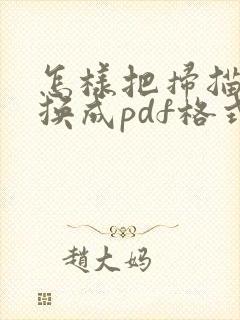 怎樣把掃描
換成pdf格式
趙大妈